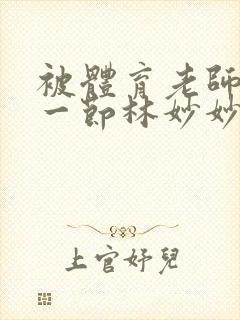 被體育老師
一節林妙妙
上官好兒